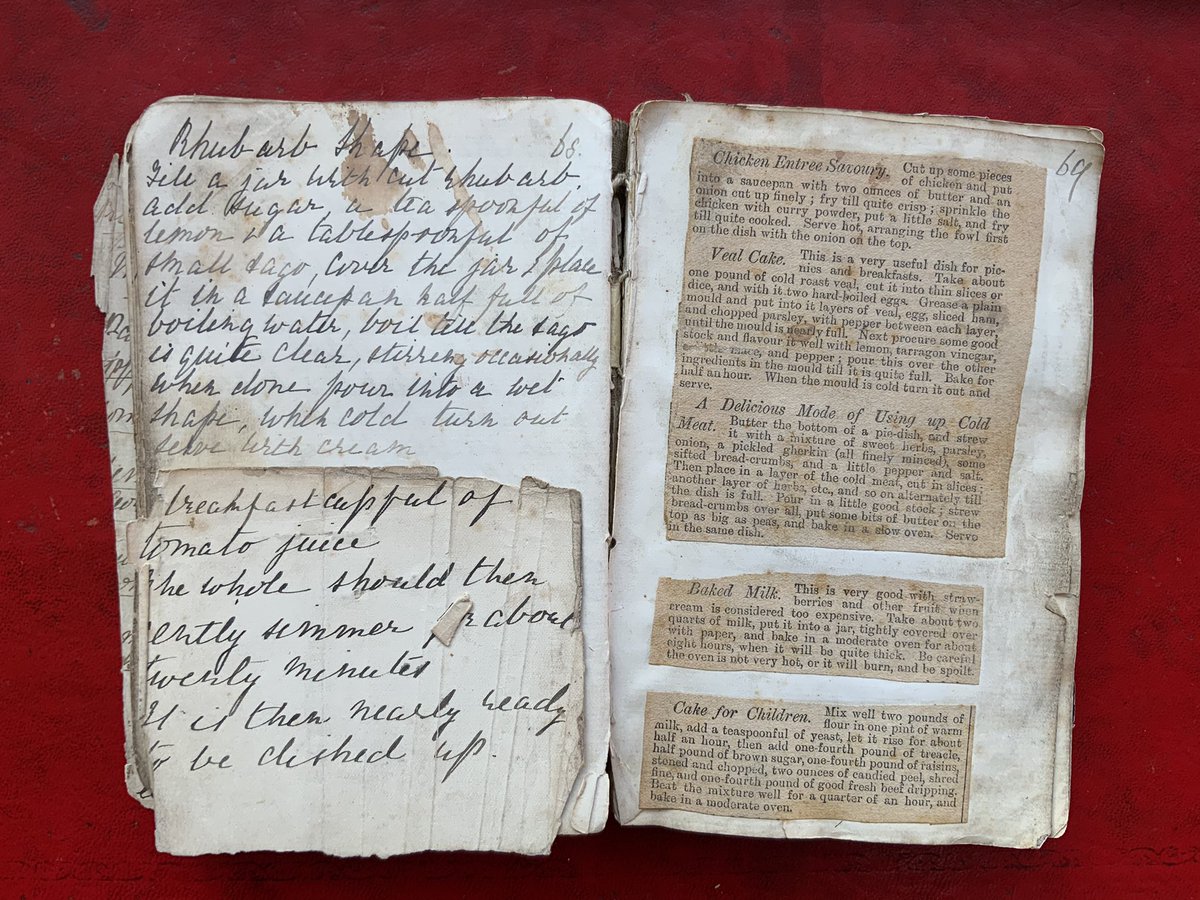 Rhubarb Shape. 68.
Fill a jar with cut rhubarb,
add sugar a tea spoonful of
lemon & a tablespoonful of
small sago, cover the jar & place
it in a saucepan half full of
boiling water, boil till the sago
is quite clear, stirring occasionally
when done pour into a wet
shape, when cold turn out
serve with cream
breakfast cupful of
tomato juice
The whole should then
gently simmer for about
twenty minutes
It is then nearly ready
to be dished up.
69
Chicken Entree Savoury. Cut up some pieces
of chicken and put
into a saucepan with two ounces of butter and an
onion cut up finely; fry till quite crisp; sprinkle the
chicken with curry powder, put a little salt, and fry
till quite cooked. Serve hot, arranging the fowl first
on the dish with the onion on the top.
Veal Cake. This is a very useful dish for pic-
nics and breakfasts. Take about
one pound of cold roast veal, cut it into thin slices or
dice, and with it two hard-boiled eggs. Grease a plain
mould and put into it layers of veal, egg, sliced ham,
and chopped parsley, with pepper between each layer,
until the mould is nearly full. Next procure some good
stock and flavour it well with lemon, tarragon vinegar,
mace, and pepper; pour this over the other
ingredients in the mould till it is quite full. Bake for
half an hour. When the mould is cold turn it out and
serve.
A Delicious Mode of Using up Cold
Meat. Butter the bottom of a pie-dish, and strew
it with a mixture of sweet herbs, parsley,
onion, a pickled gherkin (all finely minced), some
sifted bread-crumbs, and a little pepper and salt.
Then place in a layer of the cold meat, cut in slices;
another layer of herbs, etc., and so on alternately till
the dish is full. Pour in a little good stock; strew
bread-crumbs over all, put some bits of butter on the
top as big as peas, and bake in a slow oven. Serve
in the same dish.
Baked Milk. This is very good with straw-
berries and other fruit when
cream is considered too expensive. Take about two
quarts of milk, put it into a jar, tightly covered over
with paper, and bake in a moderate oven for about
eight hours, when it will be quite thick. Be careful
the oven is not very hot, or it will burn, and be spoilt.
Cake for Children. Mix well two pounds of
flour in one pint of warm
milk, add a teaspoonful of yeast, let it rise for about
half an hour, then add one-fourth pound of treacle,
half pound of brown sugar, one-fourth pound of raisins,
stoned and chopped, two ounces of candied peel, shred
fine, and one-fourth pound of good fresh beef dripping.
Beat the mixture well for a quarter of an hour, and
bake in a moderate oven.